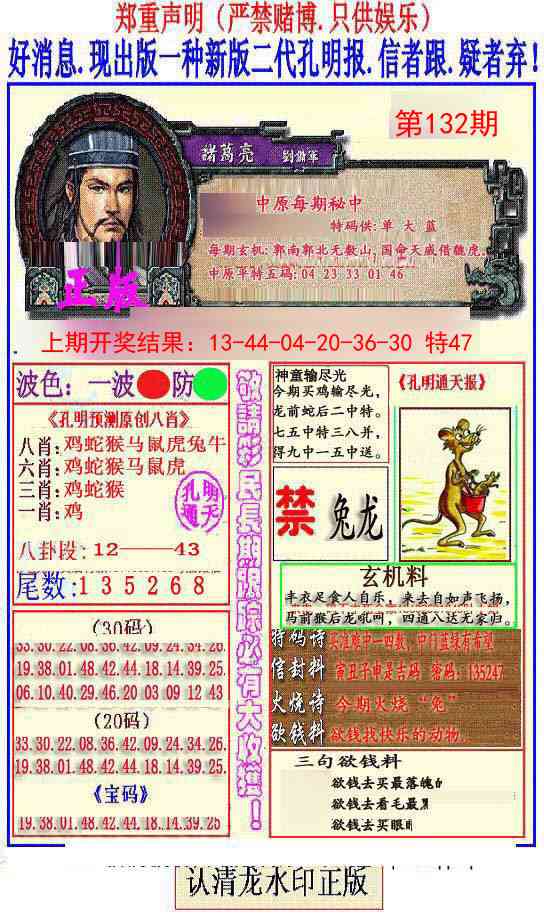 郑重声明（严禁赌博.只供娱乐）
好消息.现出版一种新版二代孔明报.信者跟.疑者弃！
第132期
諸葛亮
中原每期秘中
特码供:单 大 蓝
每期玄机:郭南郭北无数山,国命天威借魏虎.
中原平特五码:04 23 33 01 46
正版
上期开奖结果：13-44-04-20-36-30 特47
波色：一波 防
《孔明预测原创八肖》
八肖:鸡蛇猴马鼠虎兔牛
六肖:鸡蛇猴马鼠虎
三肖:鸡蛇猴
一肖:鸡
孔明
通天
八卦段:12——43
尾数:135268
(30码)
33.30.22.08.36.42.09.24.34.26
19.38.01.48.42.44.18.14.39.25
06.10.40.29.46.20 03 09 12 43
(20码)
33.30.22.08.36.42.09.24.34.26.
19.38.01.48.42.44.18.14.39.25
《宝码》
19.38.01.48.42.44.18.14.39.25
敬請彩民長期跟踪必有大收獲！
神童输尽光
今期买鸡输尽光,
龙前蛇后二中特。
七五中特三八并,
得九中一五中送。
《孔明通天报》
禁 兔龙
玄机料
丰衣足食人自乐,来去自如声飞扬,
马前猴后龙吼叫,四通八达无家归。
特码诗
信封料 寅丑子申是吉码 密码:135247
火烧诗 今期火烧“兔”
欲钱料 欲钱找快乐的动物.
三句欲钱料
欲钱去买最落魄
欲钱去看毛最
欲钱去买眼
认清龙水印正版